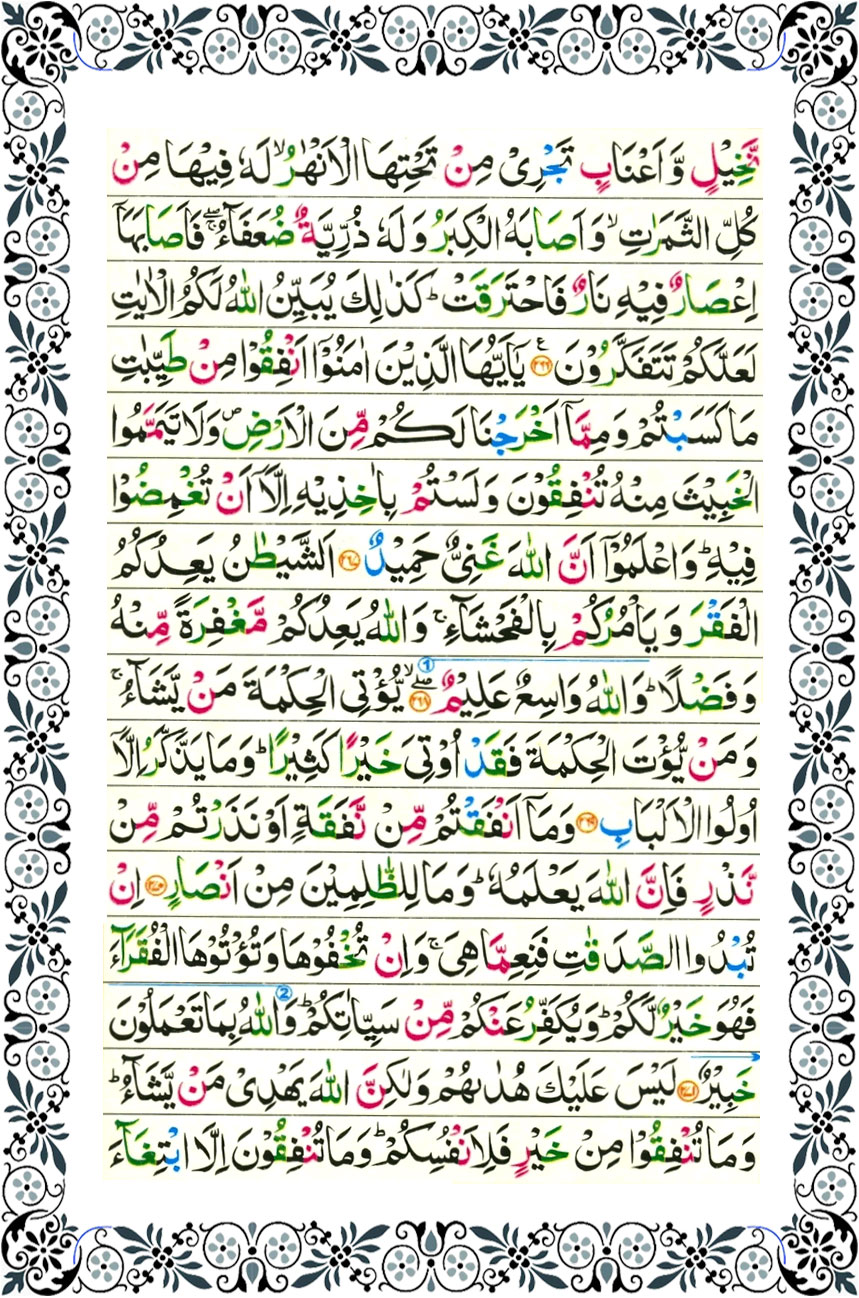 نَّخِيْلٍ وَّ اَعْنَابٍ تَجْرِیْ مِنْ تَحْتِهَا الْاَنْهٰرُ ۙ لَهٗ فِيْهَا مِنْ
كُلِّ الثَّمَرٰتِ ۙ وَ اَصَابَهُ الْكِبَرُ وَ لَهٗ ذُرِّيَّةٌ ضُعَفَآءُ ۖۚ فَاَصَابَهَاۤ
اِعْصَارٌ فِيْهِ نَارٌ فَاحْتَرَقَتْ ؕ كَذٰلِكَ يُبَيِّنُ اللّٰهُ لَكُمُ الْاٰيٰتِ
لَعَلَّكُمْ تَتَفَكَّرُوْنَ ۧ ﴿۲۶۶﴾ يٰۤاَيُّهَا الَّذِيْنَ اٰمَنُوْۤا اَنْفِقُوْا مِنْ طَيِّبٰتِ
مَا كَسَبْتُمْ وَ مِمَّاۤ اَخْرَجْنَا لَكُمْ مِّنَ الْاَرْضِ ۪ وَ لَا تَيَمَّمُوا
الْخَبِيْثَ مِنْهُ تُنْفِقُوْنَ وَ لَسْتُمْ بِاٰخِذِيْهِ اِلَّاۤ اَنْ تُغْمِضُوْا
فِيْهِ ؕ وَ اعْلَمُوْۤا اَنَّ اللّٰهَ غَنِیٌّ حَمِيْدٌ ﴿۲۶۷﴾ اَلشَّيْطٰنُ يَعِدُكُمُ
الْفَقْرَ وَ يَاْمُرُكُمْ بِالْفَحْشَآءِ ۚ وَ اللّٰهُ يَعِدُكُمْ مَّغْفِرَةً مِّنْهُ
وَ فَضْلًا ؕ وَ اللّٰهُ وَاسِعٌ عَلِيْمٌ ۖۙ ﴿۲۶۸﴾ ① يُّؤْتِی الْحِكْمَةَ مَنْ يَّشَآءُ ۚ
وَ مَنْ يُّؤْتَ الْحِكْمَةَ فَقَدْ اُوْتِیَ خَيْرًا كَثِيْرًا ؕ وَ مَا يَذَّكَّرُ اِلَّاۤ
اُولُوا الْاَلْبَابِ ﴿۲۶۹﴾ وَ مَاۤ اَنْفَقْتُمْ مِّنْ نَّفَقَةٍ اَوْ نَذَرْتُمْ مِّنْ
نَّذْرٍ فَاِنَّ اللّٰهَ يَعْلَمُهٗ ؕ وَ مَا لِلظّٰلِمِيْنَ مِنْ اَنْصَارٍ ﴿۲۷۰﴾ اِنْ
تُبْدُوا الصَّدَقٰتِ فَنِعِمَّا هِیَ ۚ وَ اِنْ تُخْفُوْهَا وَ تُؤْتُوْهَا الْفُقَرَآءَ
فَهُوَ خَيْرٌ لَّكُمْ ؕ وَ يُكَفِّرُ عَنْكُمْ مِّنْ سَيِّاٰتِكُمْ ؕ ② وَ اللّٰهُ بِمَا تَعْمَلُوْنَ
خَبِيْرٌ ﴿۲۷۱﴾ لَيْسَ عَلَيْكَ هُدٰىهُمْ وَ لٰكِنَّ اللّٰهَ يَهْدِیْ مَنْ يَّشَآءُ ؕ
وَ مَا تُنْفِقُوْا مِنْ خَيْرٍ فَلِاَنْفُسِكُمْ ؕ وَ مَا تُنْفِقُوْنَ اِلَّا ابْتِغَآءَ